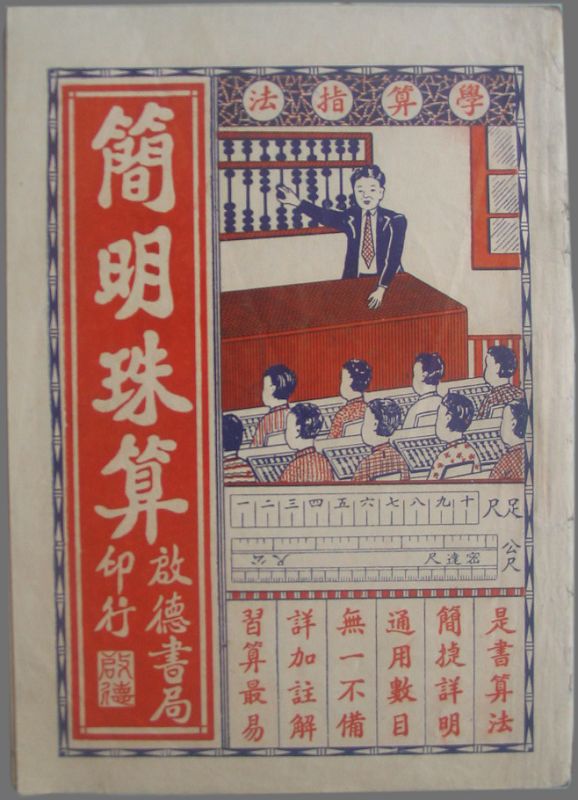 學算指法
簡明珠算
啟德書局
印行
啟德
一二三四五六七八九十
足尺
公尺
密達尺
是書算法
簡捷詳明
通用數目
無一不備
詳加註解
習算最易